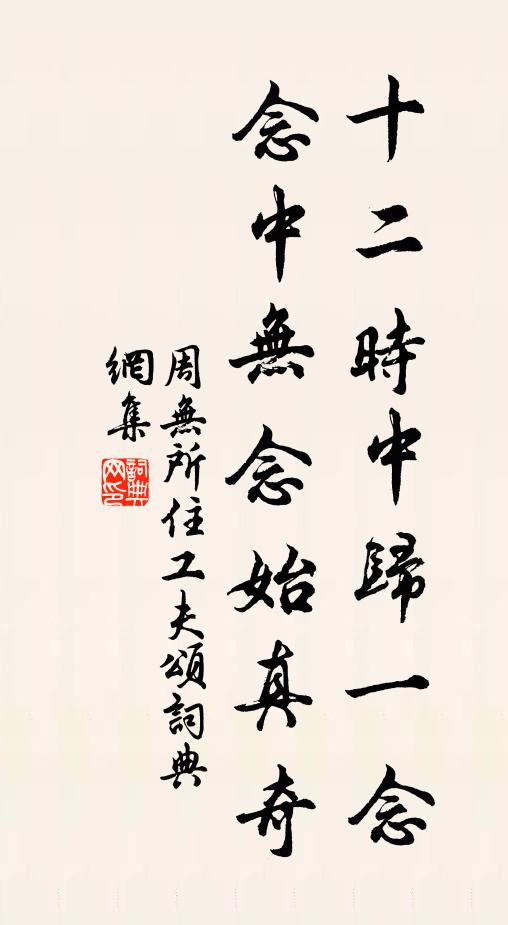 十二時中歸一念
念中無念始真奇
周無所住工夫頌詞典
網集
詞典
网印